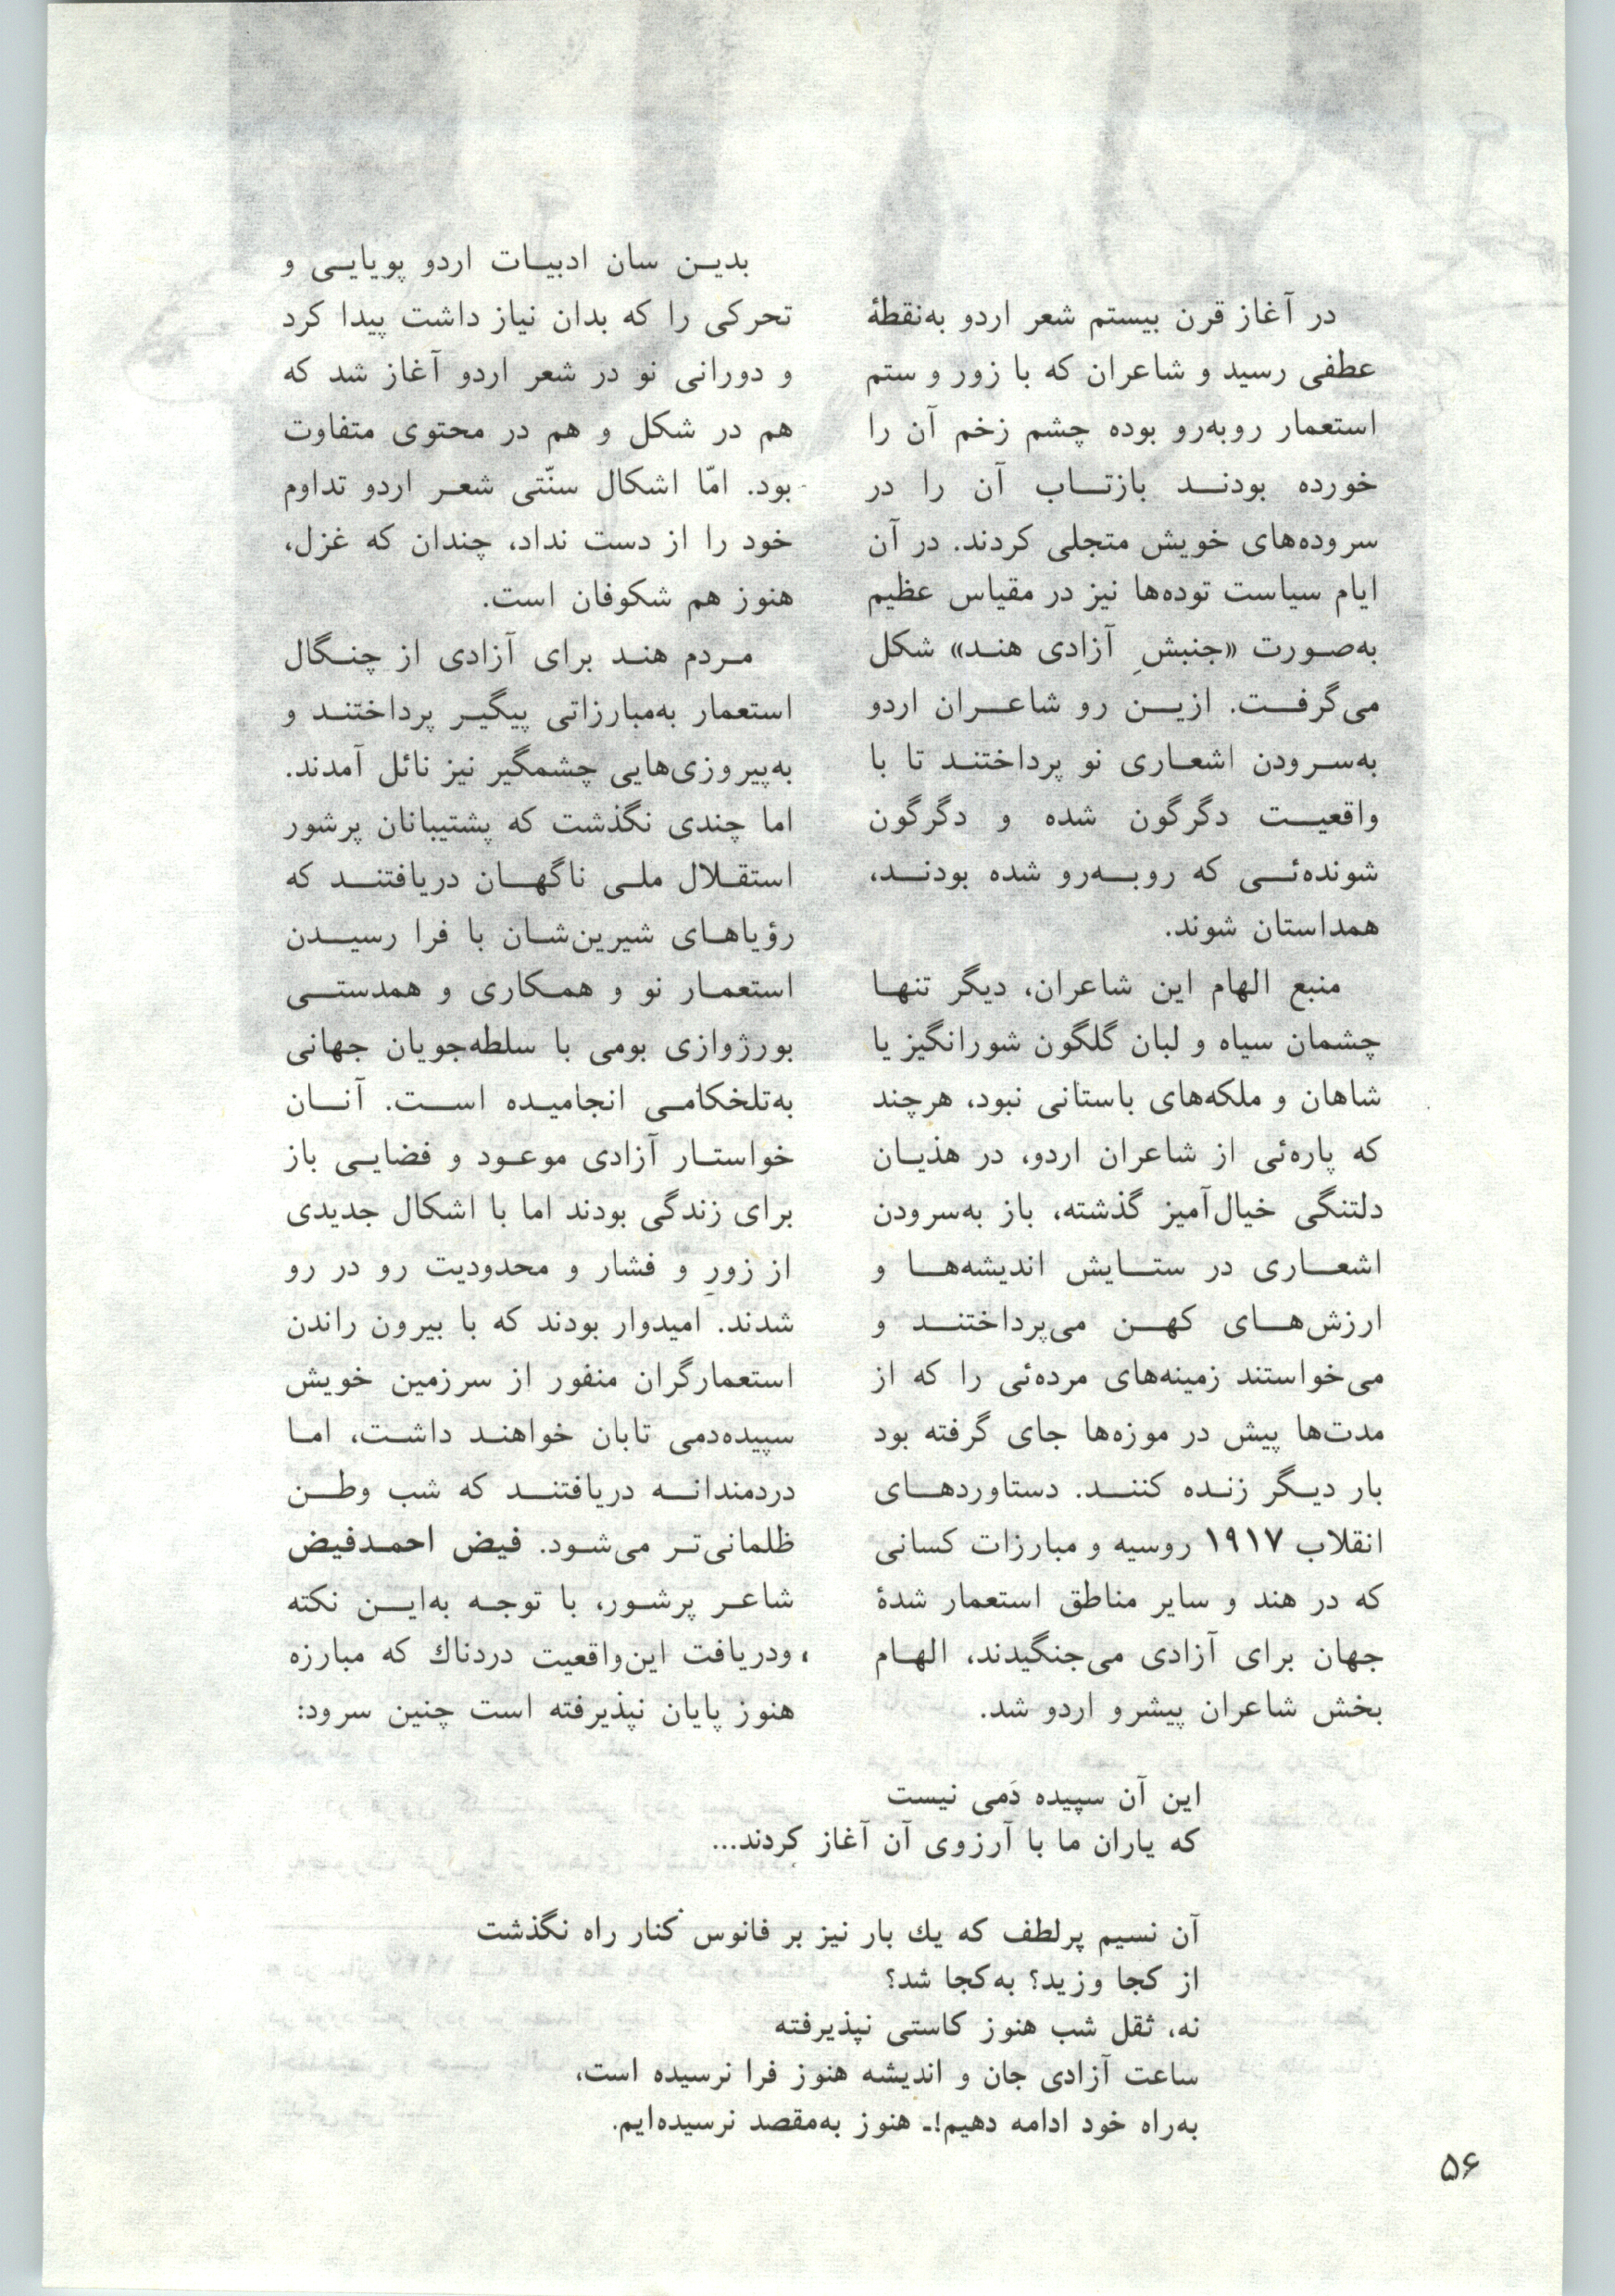 در آغاز قرن بیستم شعر اردو به‌نقطهٔ
عطفی رسید و شاعران که با زور و ستم
استعمار روبه‌رو بوده چشم زخم آن را
خورده بودند بازتاب آن را در
سروده‌های خویش متجلی کردند. در آن
ایام سیاست توده‌ها نیز در مقیاس عظیم
به‌صورت «جنبشِ آزادی هند» شکل
می‌گرفت. ازین رو شاعران اردو
به‌سرودن اشعاری نو پرداختند تا با
واقعیت دگرگون شده و دگرگون
شونده‌ئی که روبه‌رو شده بودند،
همداستان شوند.
منبع الهام این شاعران، دیگر تنها
چشمان سیاه و لبان گلگون شورانگیز یا
شاهان و ملکه‌های باستانی نبود، هرچند
که پاره‌ئی از شاعران اردو، در هذیان
دلتنگی خیال‌آمیز گذشته، باز به‌سرودن
اشعاری در ستایش اندیشه‌ها و
ارزش‌های کهن می‌پرداختند و
می‌خواستند زمینه‌های مرده‌ئی را که از
مدت‌ها پیش در موزه‌ها جای گرفته بود
بار دیگر زنده کنند. دستاوردهای
انقلاب ۱۹۱۷ روسیه و مبارزات کسانی
که در هند و سایر مناطق استعمار شدهٔ
جهان برای آزادی می‌جنگیدند، الهام
بخش شاعران پیشرو اردو شد.
بدین سان ادبیات اردو پویایی و
تحرکی را که بدان نیاز داشت پیدا کرد
و دورانی نو در شعر اردو آغاز شد که
هم در شکل و هم در محتوی متفاوت
بود. امّا اشکال سنّتی شعر اردو تداوم
خود را از دست نداد، چندان که غزل،
هنوز هم شکوفان است.
مردم هند برای آزادی از چنگال
استعمار به‌مبارزاتی پیگیر پرداختند و
به‌پیروزی‌هایی چشمگیر نیز نائل آمدند.
اما چندی نگذشت که پشتیبانان پرشور
استقلال ملی ناگهان دریافتند که
رؤیاهای شیرین‌شان با فرا رسیدن
استعمار نو و همکاری و همدستی
بورژوازی بومی با سلطه‌جویان جهانی
به‌تلخکامی انجامیده است. آنان
خواستار آزادی موعود و فضایی باز
برای زندگی بودند اما با اشکال جدیدی
از زورِ و فشار و محدودیت رو در رو
شدند. امیدوار بودند که با بیرون راندن
استعمارگران منفور از سرزمین خویش
سپیده‌دمی تابان خواهند داشت، اما
دردمندانه دریافتند که شب وطن
ظلمانی‌تر می‌شود. فیض احمدفیض
شاعر پرشور، با توجه به‌این نکته
، ودریافت این‌واقعیت دردناك که مبارزه
هنوز پایان نپذیرفته است چنین سرود:
این آن سپیده دَمی نیست
که یاران ما با آرزوی آن آغاز کردند...
آن نسیم پرلطف که یك بار نیز بر فانوس کنار راه نگذشت
از کجا وزید؟ به‌کجا شد؟
نه، ثقل شب هنوز کاستی نپذیرفته
ساعت آزادی جان و اندیشه هنوز فرا نرسیده است،
به‌راه خود ادامه دهیم!ـ هنوز به‌مقصد نرسیده‌ایم.
۵۶